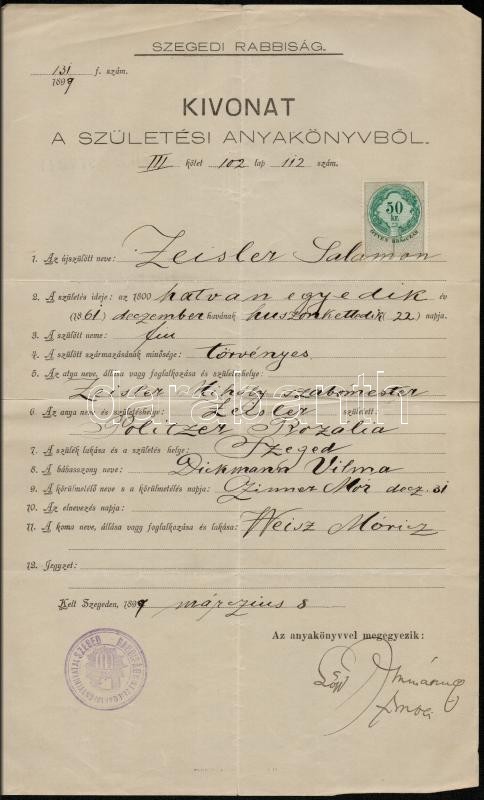 SZEGEDI RABBISÁG.
131 f. szám.
1899
KIVONAT
A SZÜLETÉSI ANYAKÖNYVBŐL.
III kötet 102 lap 112 szám.
50
kr.
ÖTVEN KRAJCZÁR
1. Az újszülött neve: Zeisler Salamon
2. A születés ideje: az 1800 hatvan egyedik év
(1861) deczember havának huszonkettedik 22) napja.
3. A szülött neme: fiu
4. A szülött származásának minősége: törvényes
5. Az atya neve, állása vagy foglalkozása és születéshelye:
Zeisler Mihály szabómester
6. Az anya neve és születéshelye: Zeisler született:
Politzer Rozália
7. A szülők lakása és a születés helye: Szeged
8. A bábasszony neve: Dickmann Vilma
9. A körülmetélő neve s a körülmetélés napja: Zinner Mór decz. 31
10. Az elnevezés napja:
11. A koma neve, állása vagy foglalkozása és lakása: Weisz Móricz
12. Jegyzet:
Kelt Szegeden, 1899 márczius 8
Az anyakönyvvel megegyezik:
darabanth